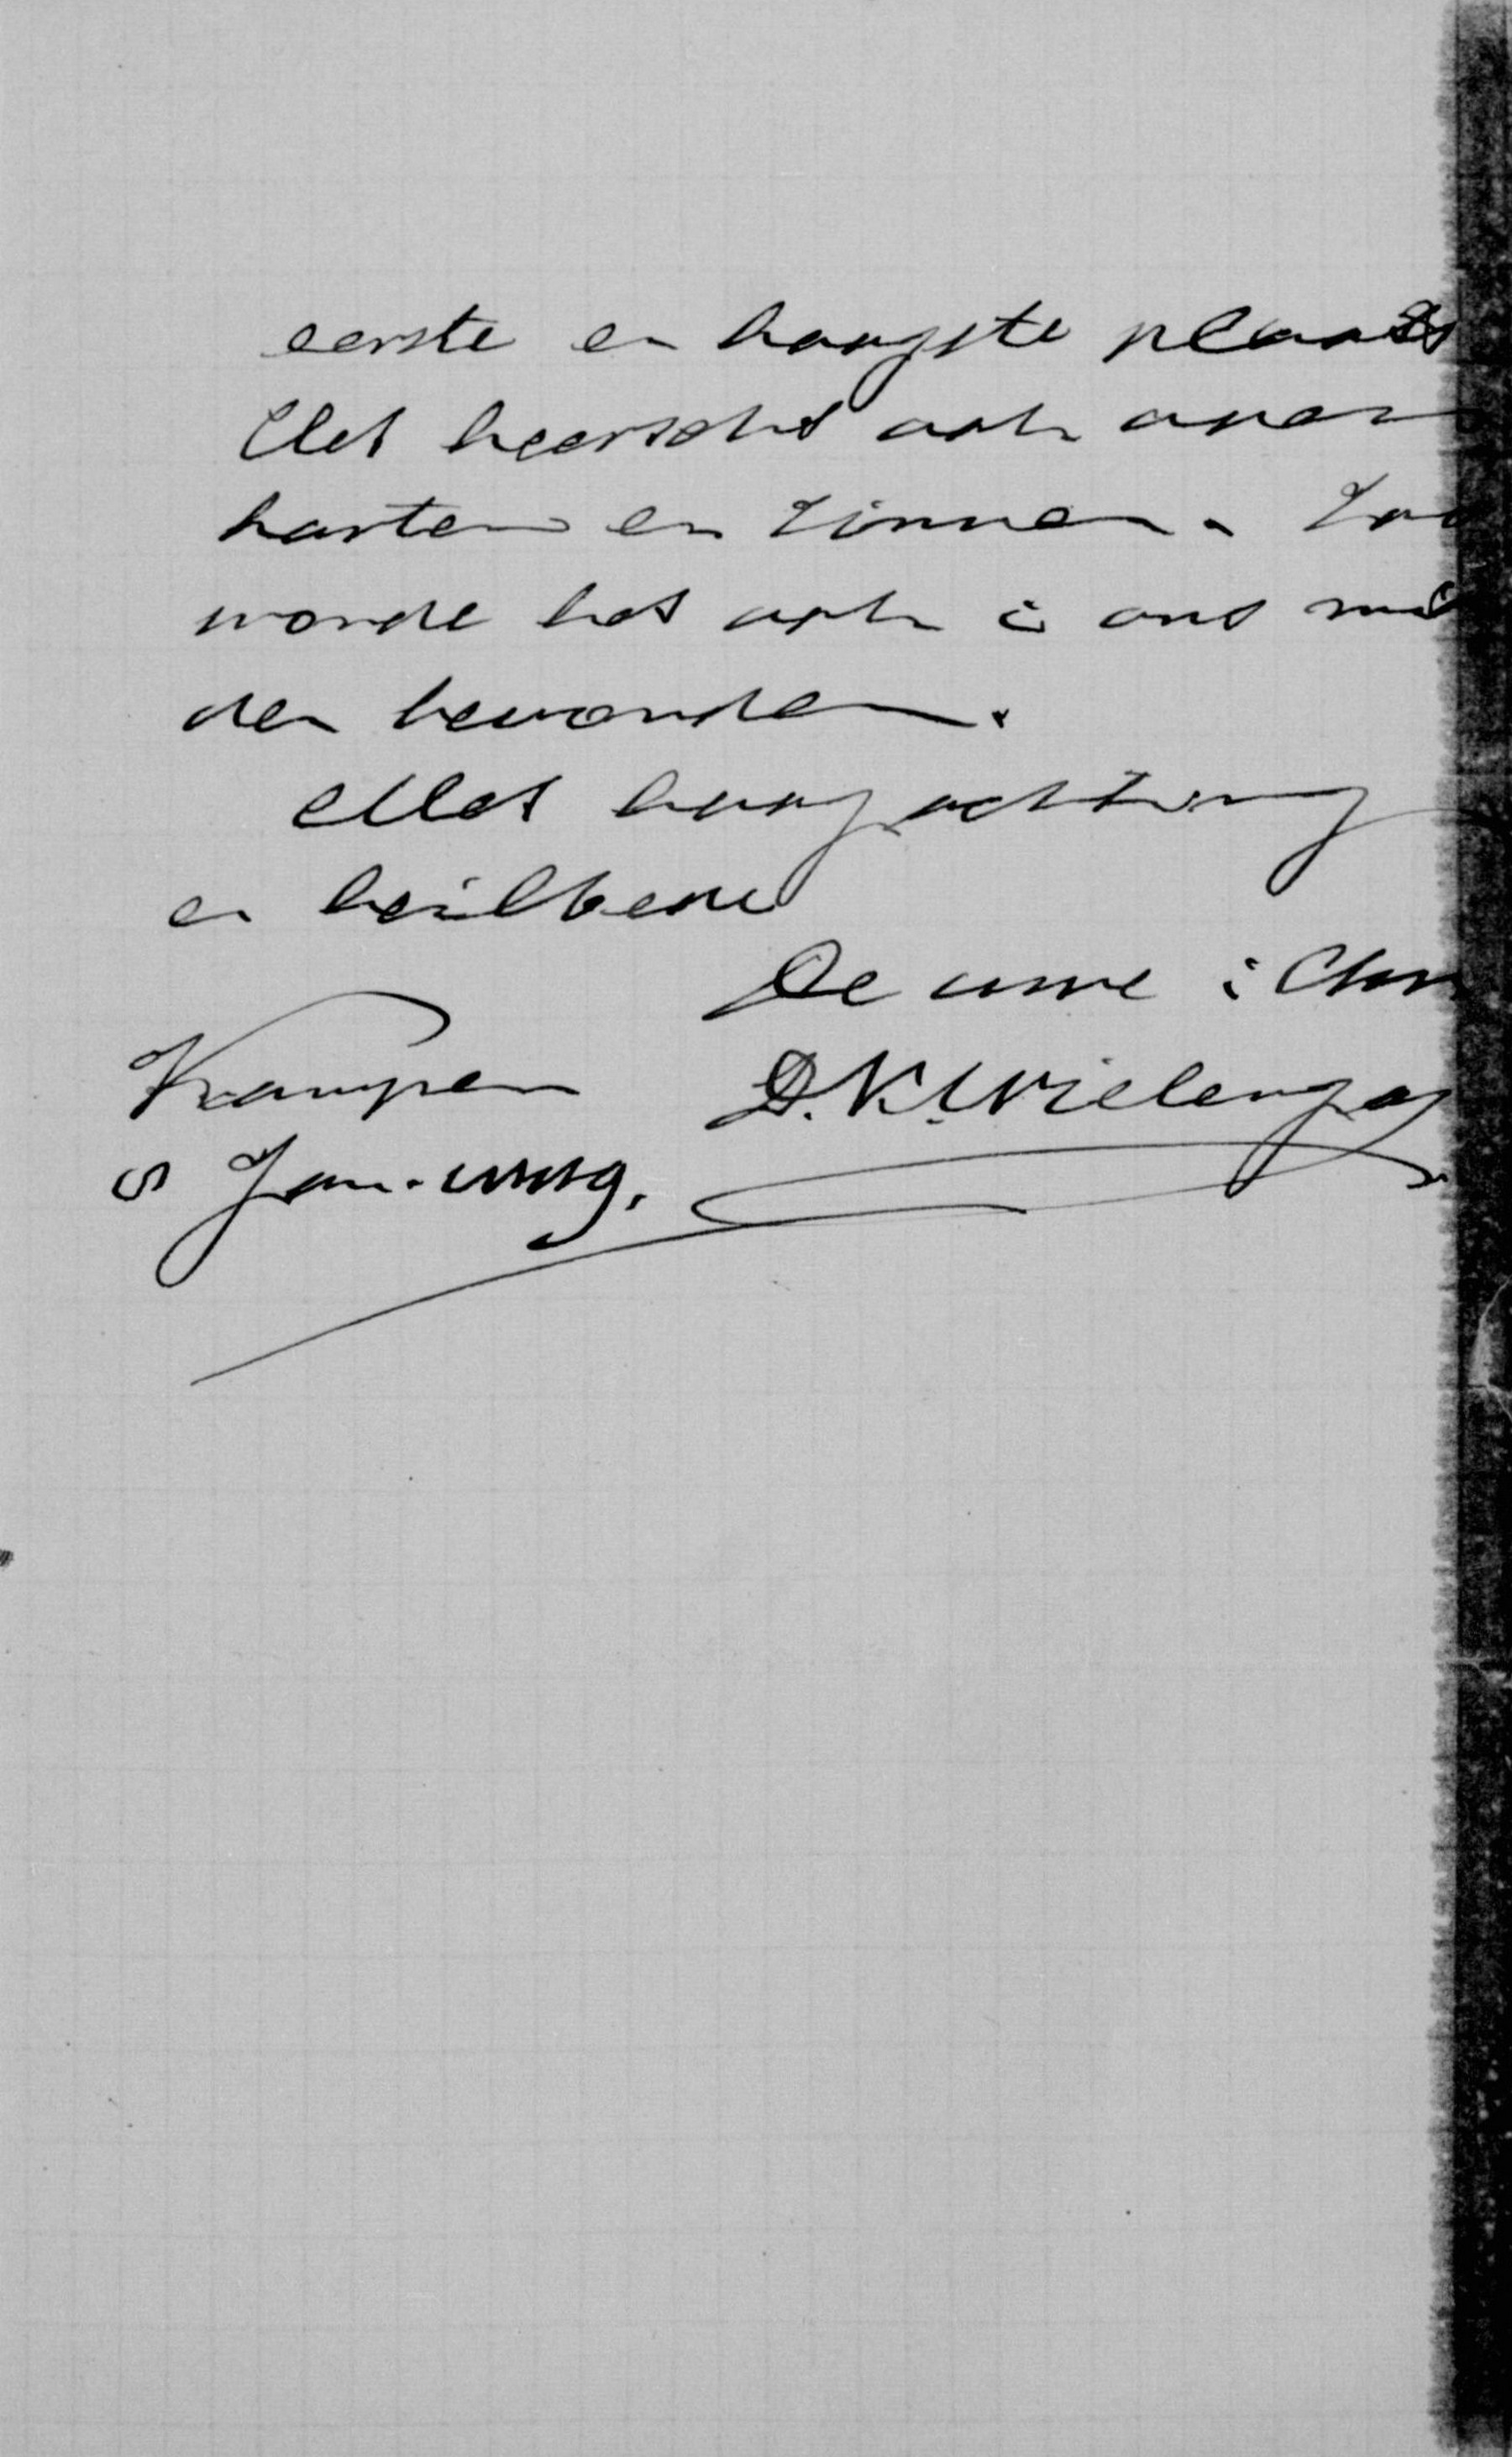 eerste en hoogste plaats
Het heerscht ook over
harten en zinnen. Zoo
worde het ook in ons mid
den bevonden.
Met hoogachting
en heilbede
De uwe in Chr
Kampen D. K. Wielenga
5 Jan.